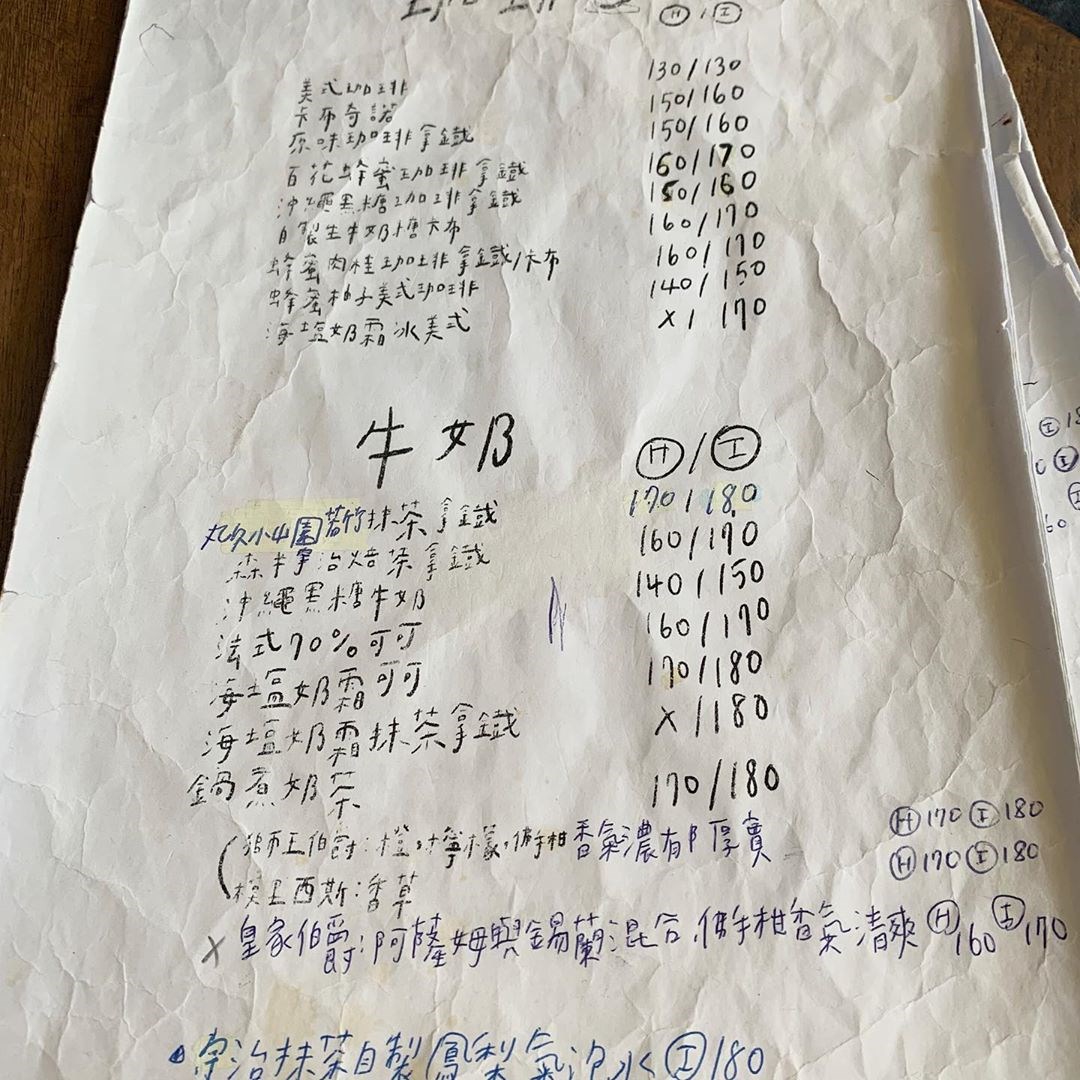 Ⓗ/Ⓘ
美式咖啡 130/130
卡布奇諾 150/160
原味咖啡拿鐵 150/160
百花蜂蜜咖啡拿鐵 160/170
沖繩黑糖咖啡拿鐵 150/160
自製生牛奶糖卡布 160/170
蜂蜜肉桂咖啡拿鐵/卡布 160/170
蜂蜜柚子美式咖啡 140/150
海塩奶霜冰美式 x/170
牛奶 Ⓗ/Ⓘ
丸久小山園若竹抹茶拿鐵 170/180
森半宇治焙茶拿鐵 160/170
沖繩黑糖牛奶 140/150
法式70%可可 160/170
海塩奶霜可可 170/180
海塩奶霜抹茶拿鐵 x/180
鍋煮奶茶 170/180
(獅王伯爵:橙,檸檬,佛手柑香氣濃郁厚實 Ⓗ170 Ⓘ180
模里西斯:香草 Ⓗ170 Ⓘ180
x 皇家伯爵:阿薩姆與錫蘭混合,佛手柑香氣清爽 Ⓗ160 Ⓘ170
宇治抹茶自製鳳梨氣泡水 Ⓘ180